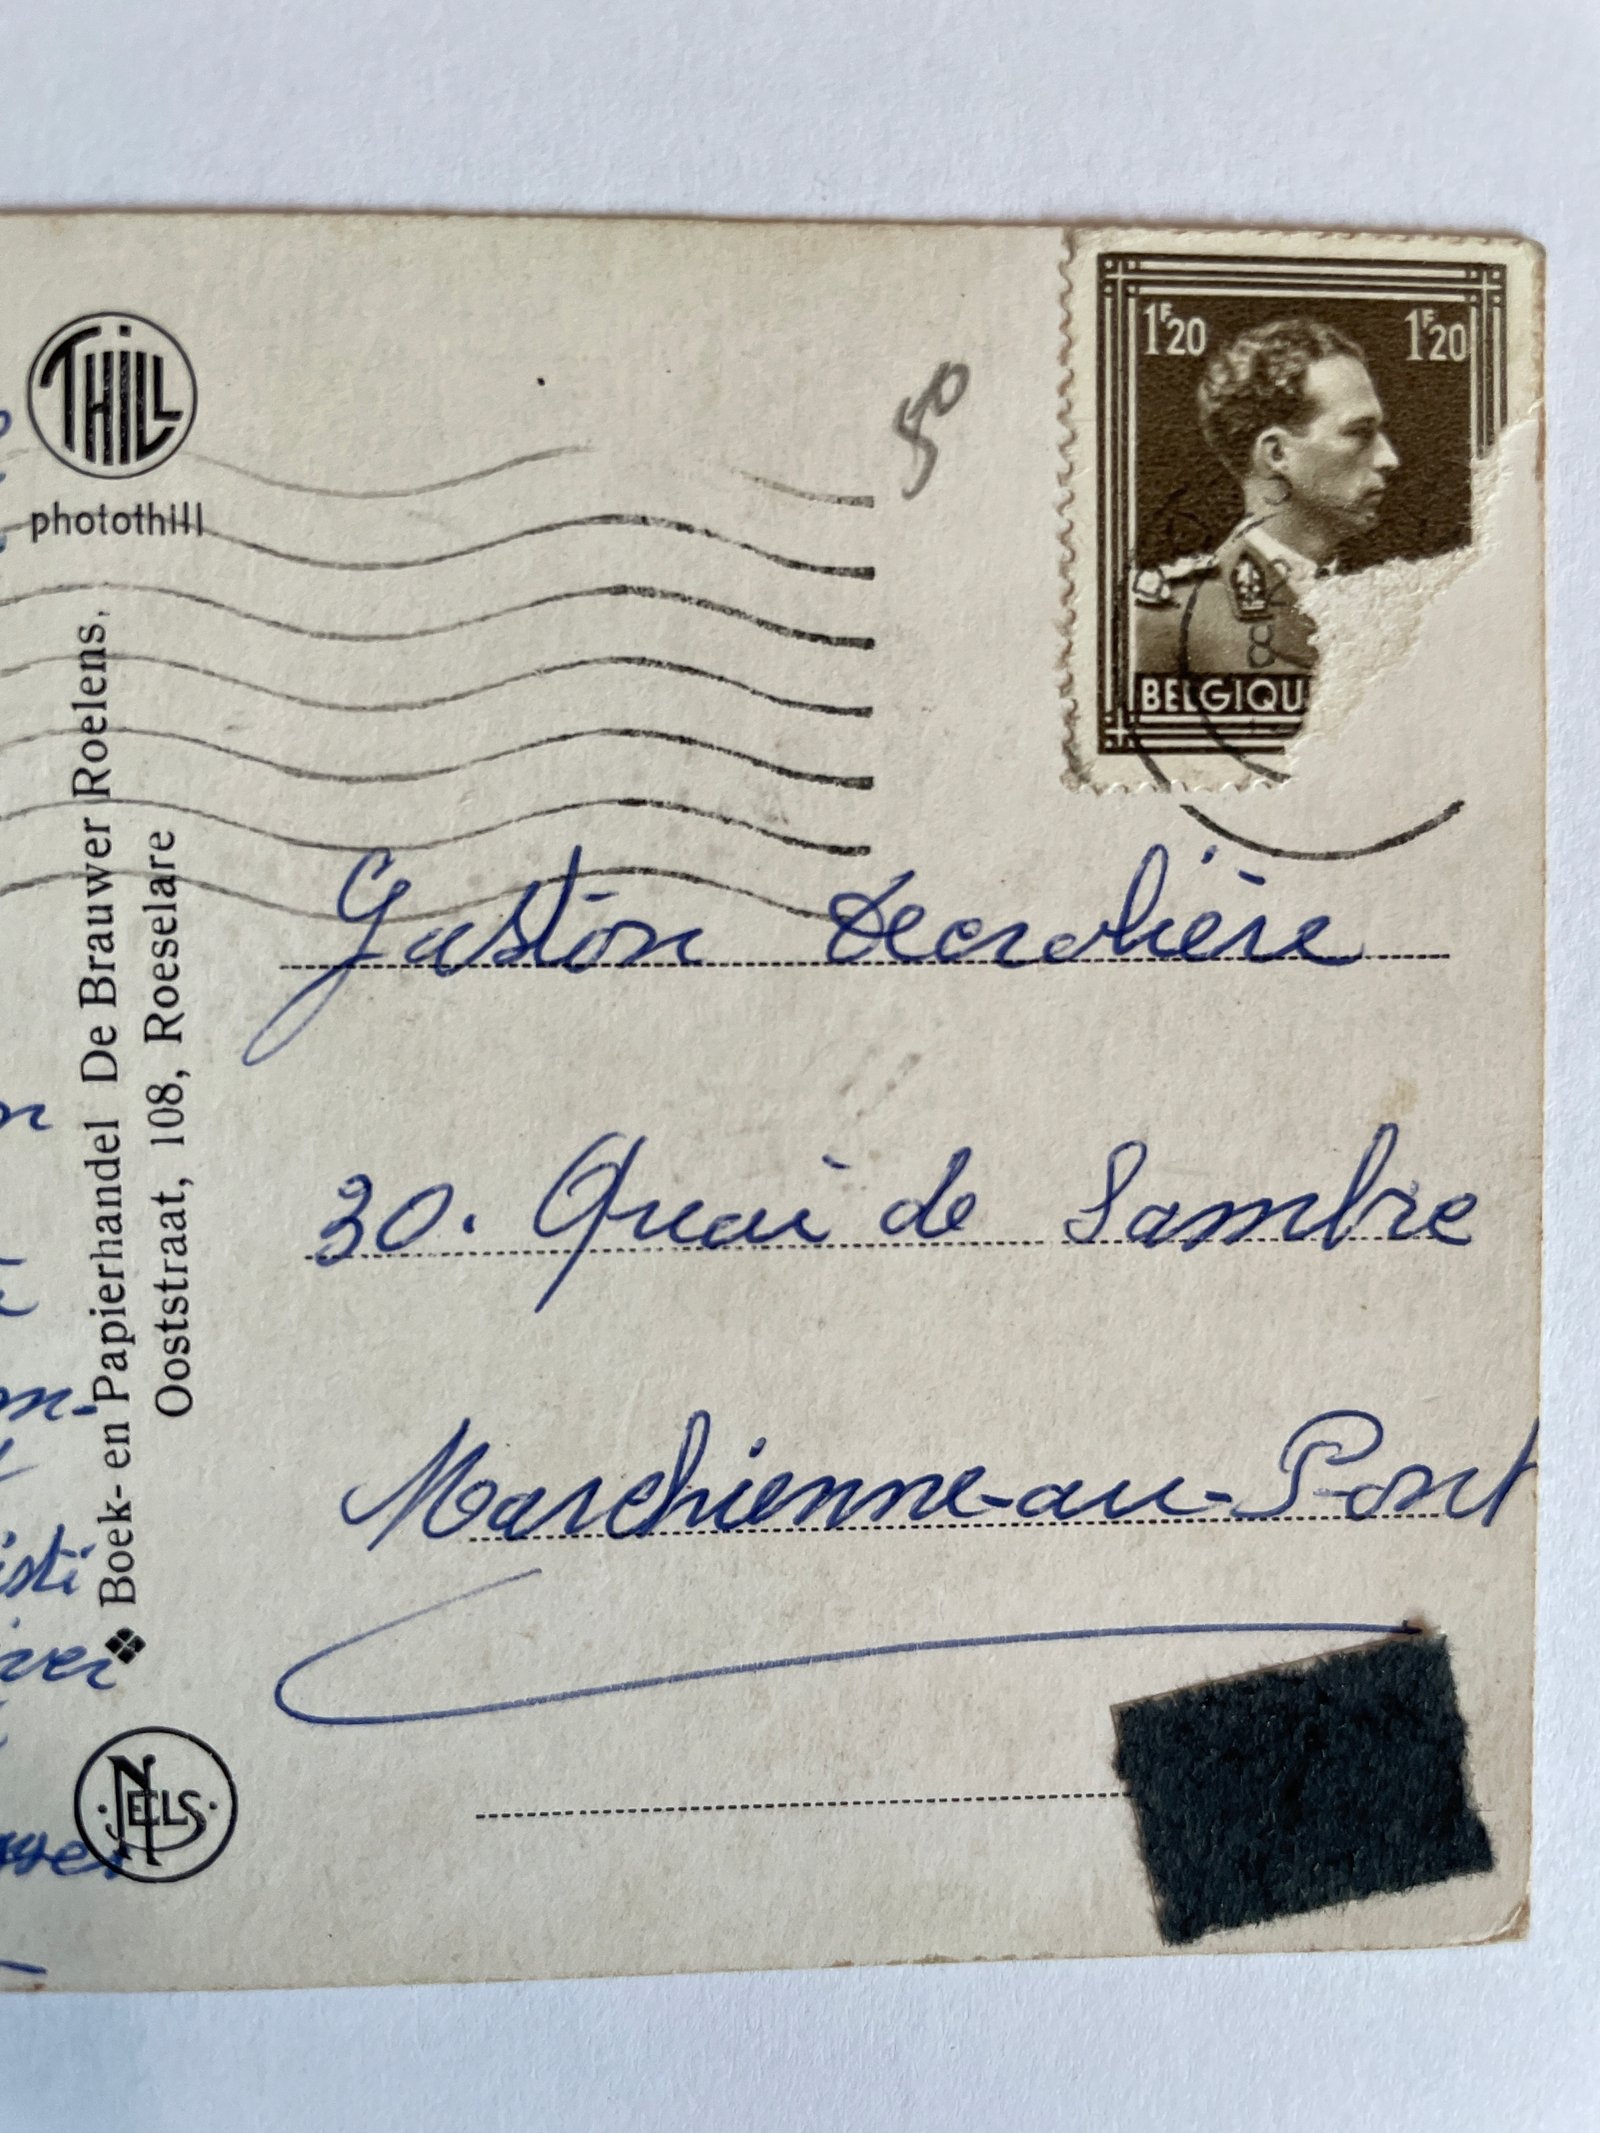 THILL
photothill
50
1F20 1F20
BELGIQU
Boek- en Papierhandel De Brauwer Roelens,
Ooststraat, 108, Roeselare
Gaston
30. Quai de Sambre
Marchienne-au-Pont
NELS